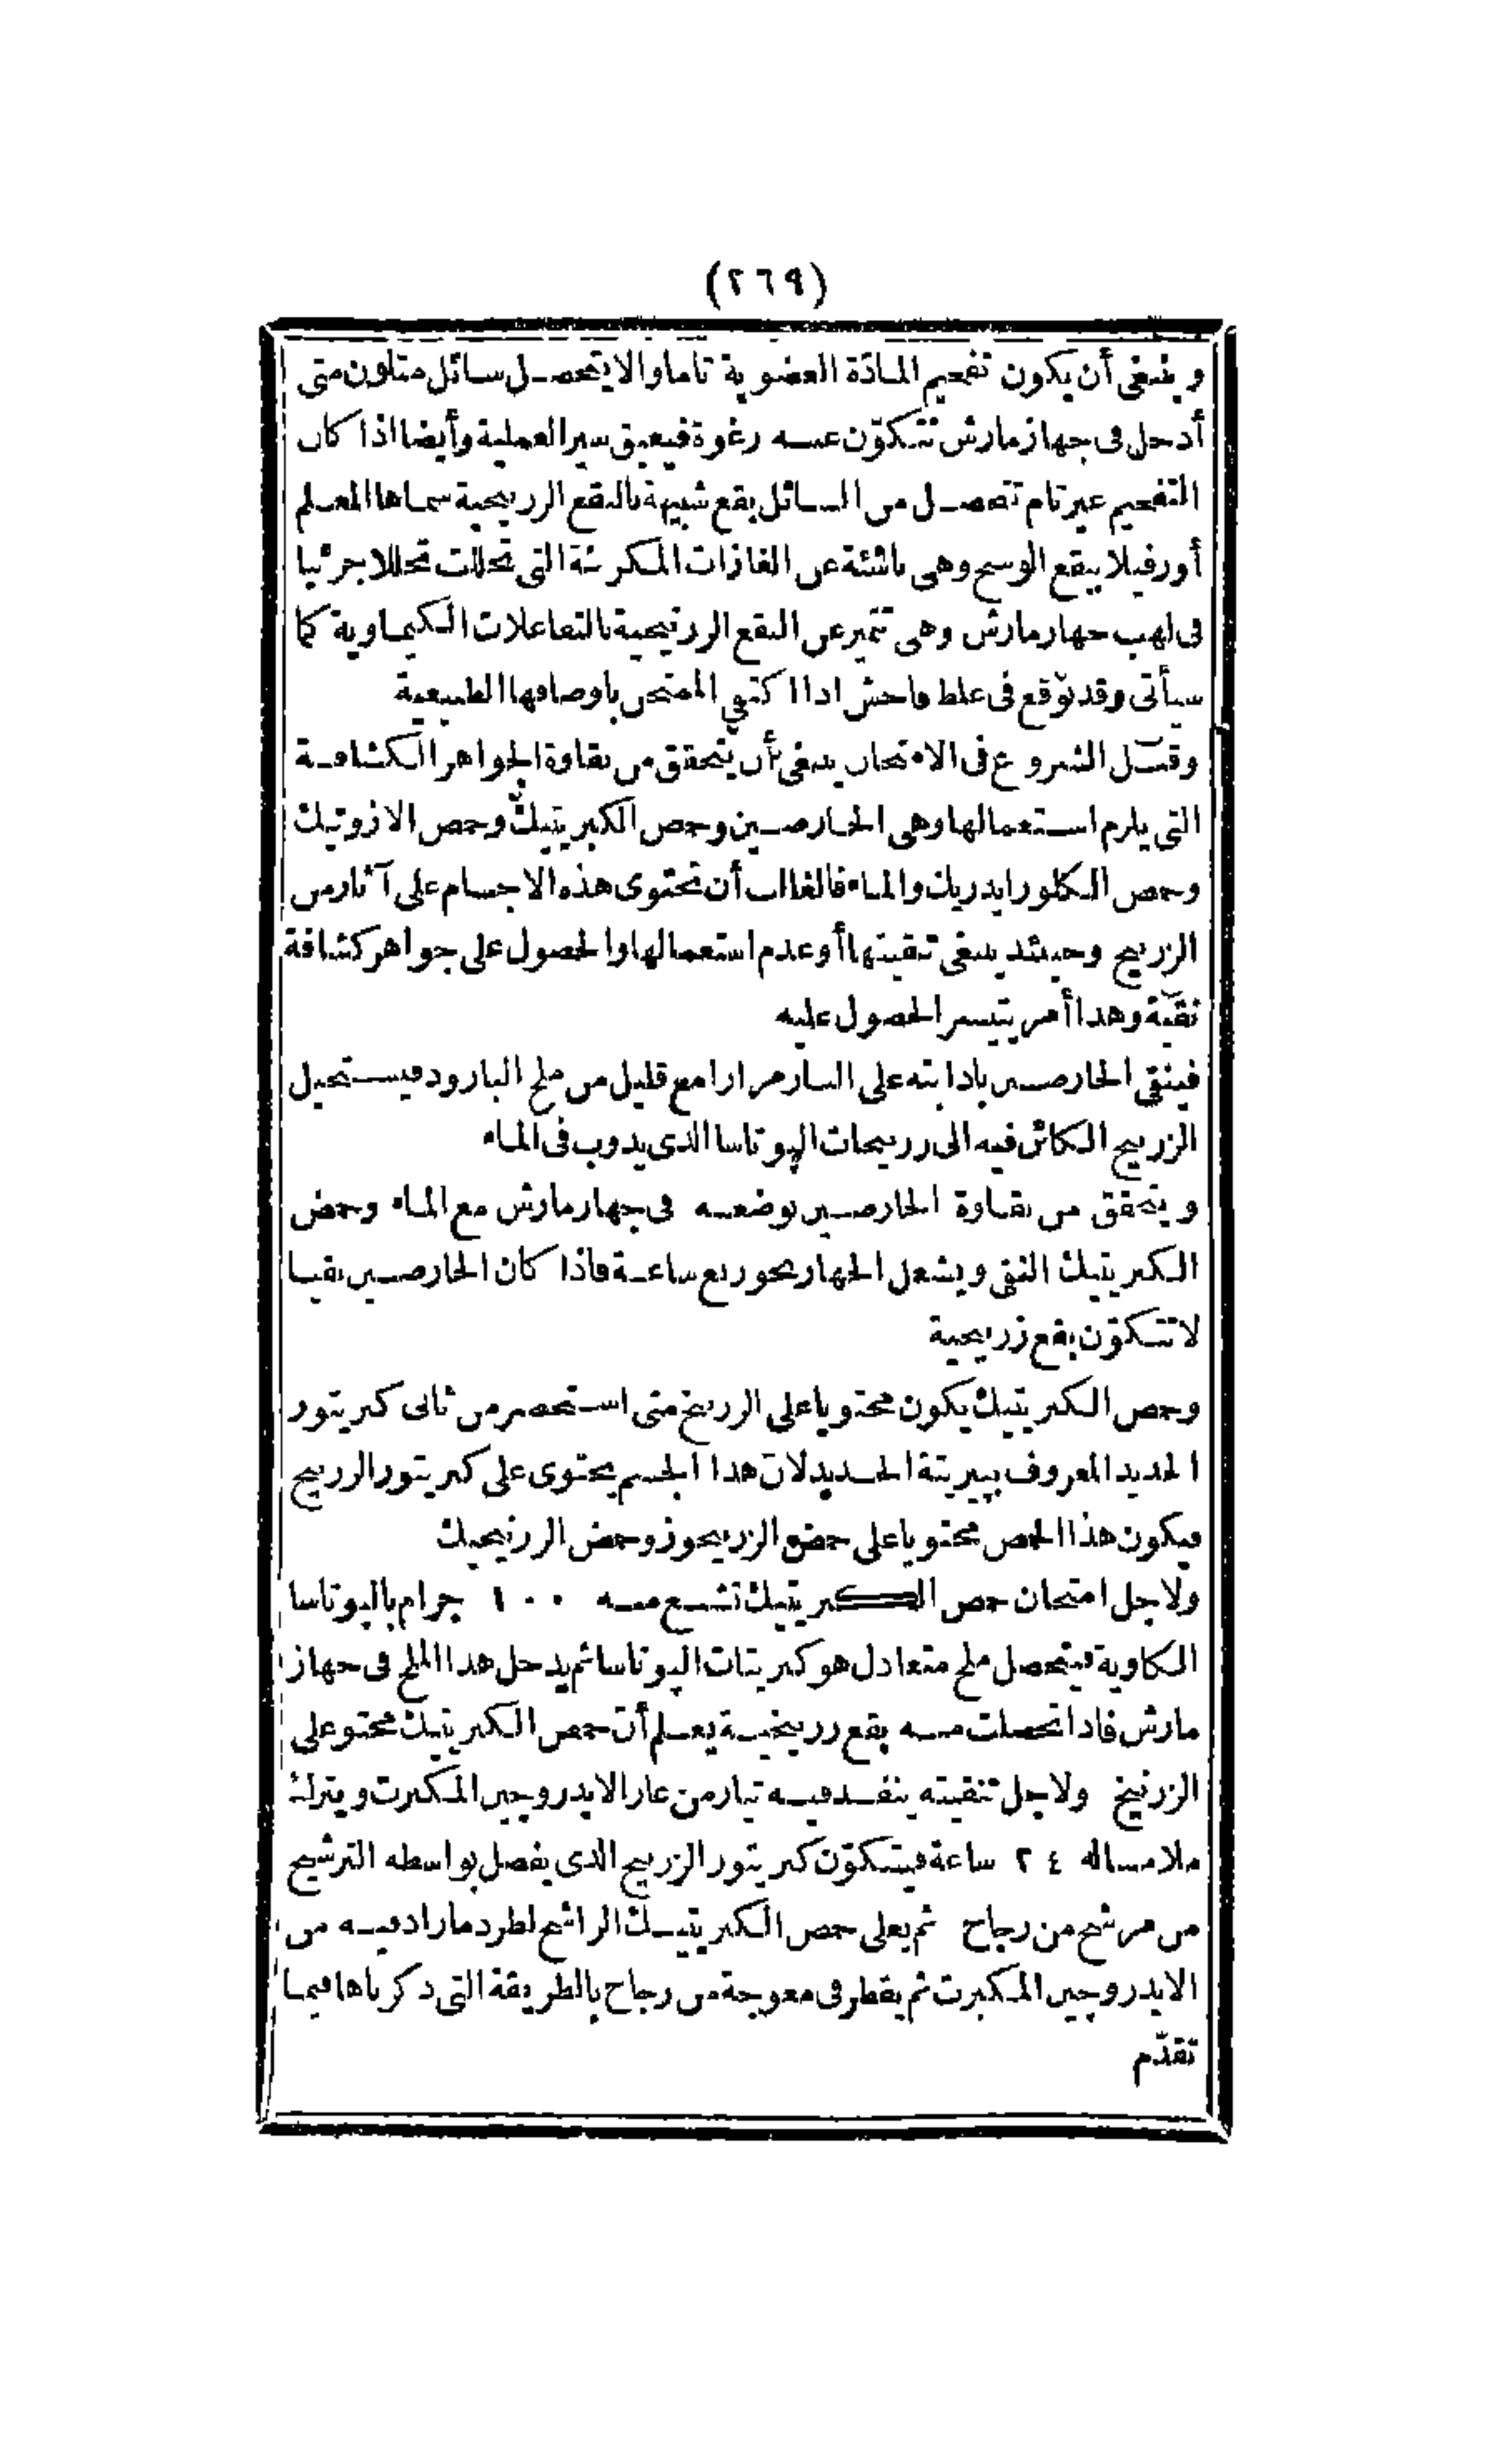 (٢٦٩)
وينبغى أن يكون تفحيم المادّة العضوية تاما والا يتحصل سائل متلون متى
أدخل فى جهاز مارش تتكوّن عنه رغوة فيعيق سير العملية وأيضا اذا كان
التفحيم غير تام تتحصل من السائل بقع شبيهة بالبقع الزرنيخية سماها المعلم
أورفيلا ببقع الوسخ وهى ناشئة عن الغازات المكربنة التى تحللت تحللا جزئيا
فى لهب جهاز مارش وهى تتميز عن البقع الزرنيخية بالتفاعلات الكيماوية كما
سيأتى وقد توقع فى غلط فاحش اذا اكتفى الممتحن باوصافها الطبيعية
وقبل الشروع فى الامتحان ينبغى أن يتحقق من نقاوة الجواهر الكشافة
التى يلزم استعمالها وهى الخارصين وحمض الكبريتيك وحمض الازوتيك
وحمض الكلورايدريك والماء فالغالب أن تحتوى هذه الاجسام على آثار من
الزرنيخ وحينئذ ينبغى تنقيتها أو عدم استعمالها والحصول على جواهر كشافة
نقية وهذا أمر يتيسر الحصول عليه
فينقى الخارصين باذابته على النار مرارا مع قليل من ملح البارود فيستحيل
الزرنيخ الكائن فيه الى زرنيخات الپوتاسا الذى يذوب فى الماء
ويتحقق من نقاوة الخارصين بوضعه فى جهاز مارش مع الماء وحمض
الكبريتيك النقى ويشعل الجهاز نحو ربع ساعة فاذا كان الخارصين نقيا
لا تتكوّن بقع زرنيخية
وحمض الكبريتيك يكون محتويا على الزرنيخ متى استحضر من ثانى كبريتور
الحديد المعروف بپيريتة الحديد لان هذا الجسم يحتوى على كبريتور الزرنيخ
فيكون هذا الحمض محتويا على حمض الزرنيخوز وحمض الزرنيخيك
ولاجل امتحان حمض الكبريتيك تشبع منه ١٠٠ جرام بالپوتاسا
الكاوية فيتحصل ملح متعادل هو كبريتات الپوتاسا ثم يدخل هذا الملح فى جهاز
مارش فاذا تحصلت منه بقع زرنيخية يعلم أن حمض الكبريتيك محتو على
الزرنيخ ولاجل تنقيته ينفذ فيه تيار من غاز الايدروچين المكبرت ويترك
ملامساله ٢٤ ساعة فيتكوّن كبريتور الزرنيخ الذى يفصل بواسطه الترشيح
من مرشح من زجاج ثم يغلى حمض الكبريتيك الراشح لطرد ما زاد فيه من
الايدروچين المكبرت ثم يقطر فى معوجة من زجاج بالطريقة التى ذكرناها فيما
تقدّم